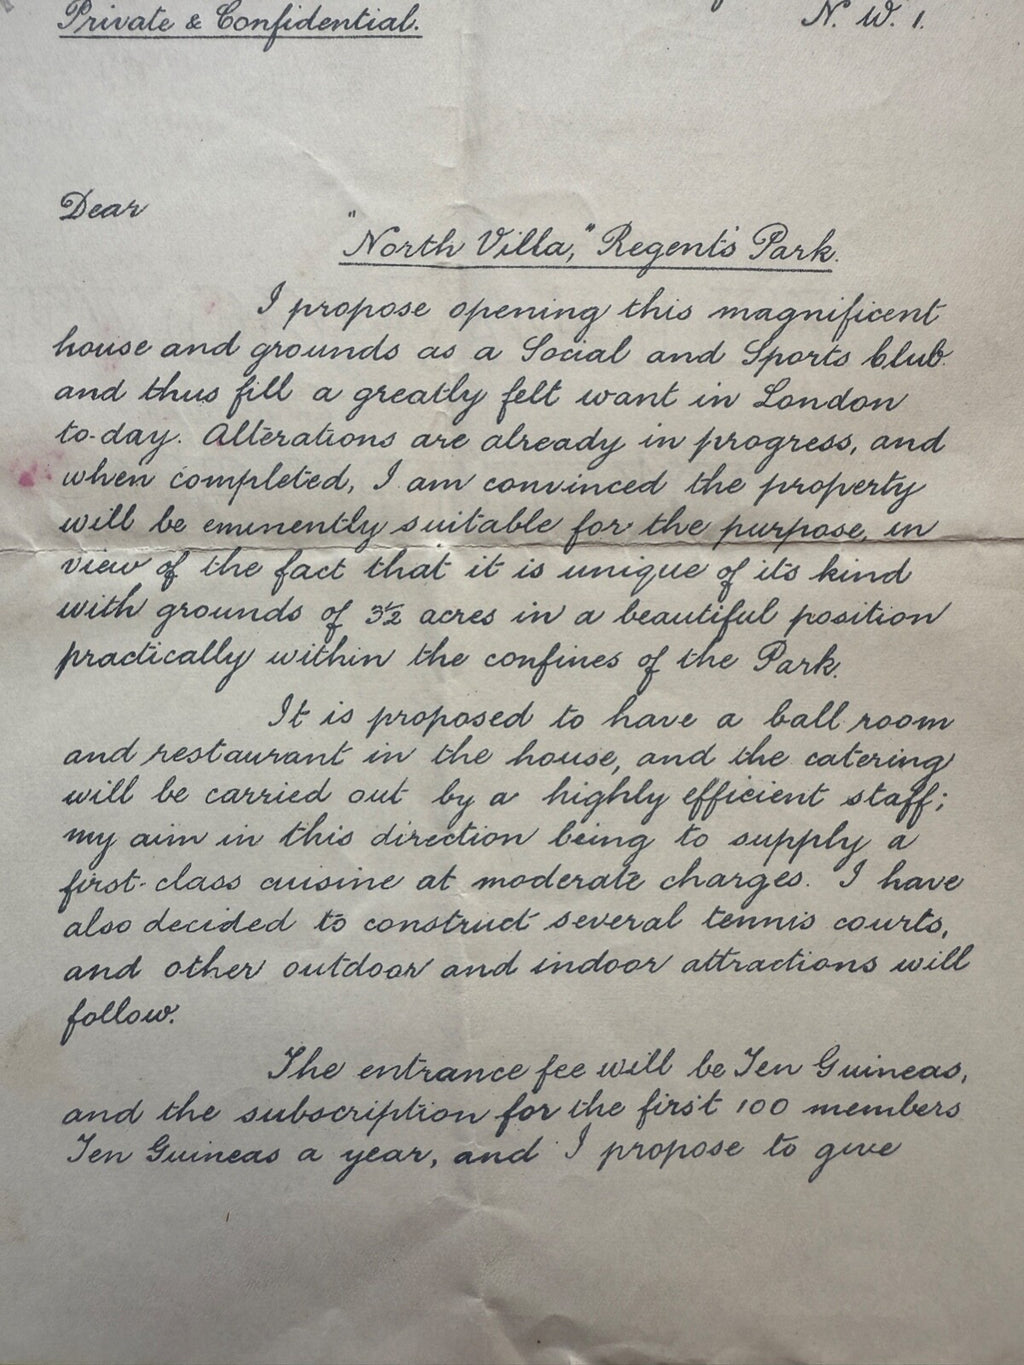 Private & Confidential.
N. W. 1.
Dear
"North Villa," Regent's Park.
I propose opening this magnificent
house and grounds as a Social and Sports Club
and thus fill a greatly felt want in London
to-day. Alterations are already in progress, and
when completed, I am convinced the property
will be eminently suitable for the purpose, in
view of the fact that it is unique of its kind
with grounds of 3½ acres in a beautiful position
practically within the confines of the Park.
It is proposed to have a ball room
and restaurant in the house, and the catering
will be carried out by a highly efficient staff;
my aim in this direction being to supply a
first-class cuisine at moderate charges. I have
also decided to construct several tennis courts,
and other outdoor and indoor attractions will
follow.
The entrance fee will be Ten Guineas,
and the subscription for the first 100 members
Ten Guineas a year, and I propose to give